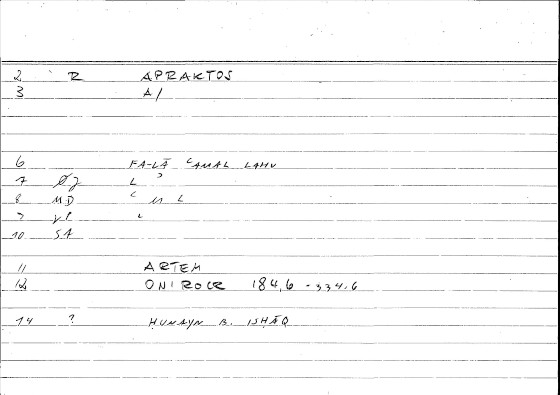 2 R APRAKTOS
3 A/
6 FA-LĀ ʿAMAL LAHU
7 L ʾ
8 MD ʿ M L
10 SA
11 ARTEM
12 ONIROCR 184,6 - 334.6
14 ? HUNAYN B. ISHĀQ